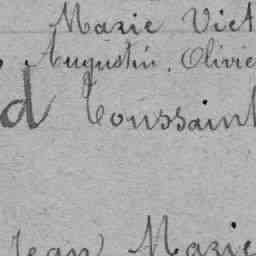 Marie Vict
Augustin, Olivie
d Toussaint
Jean Marie